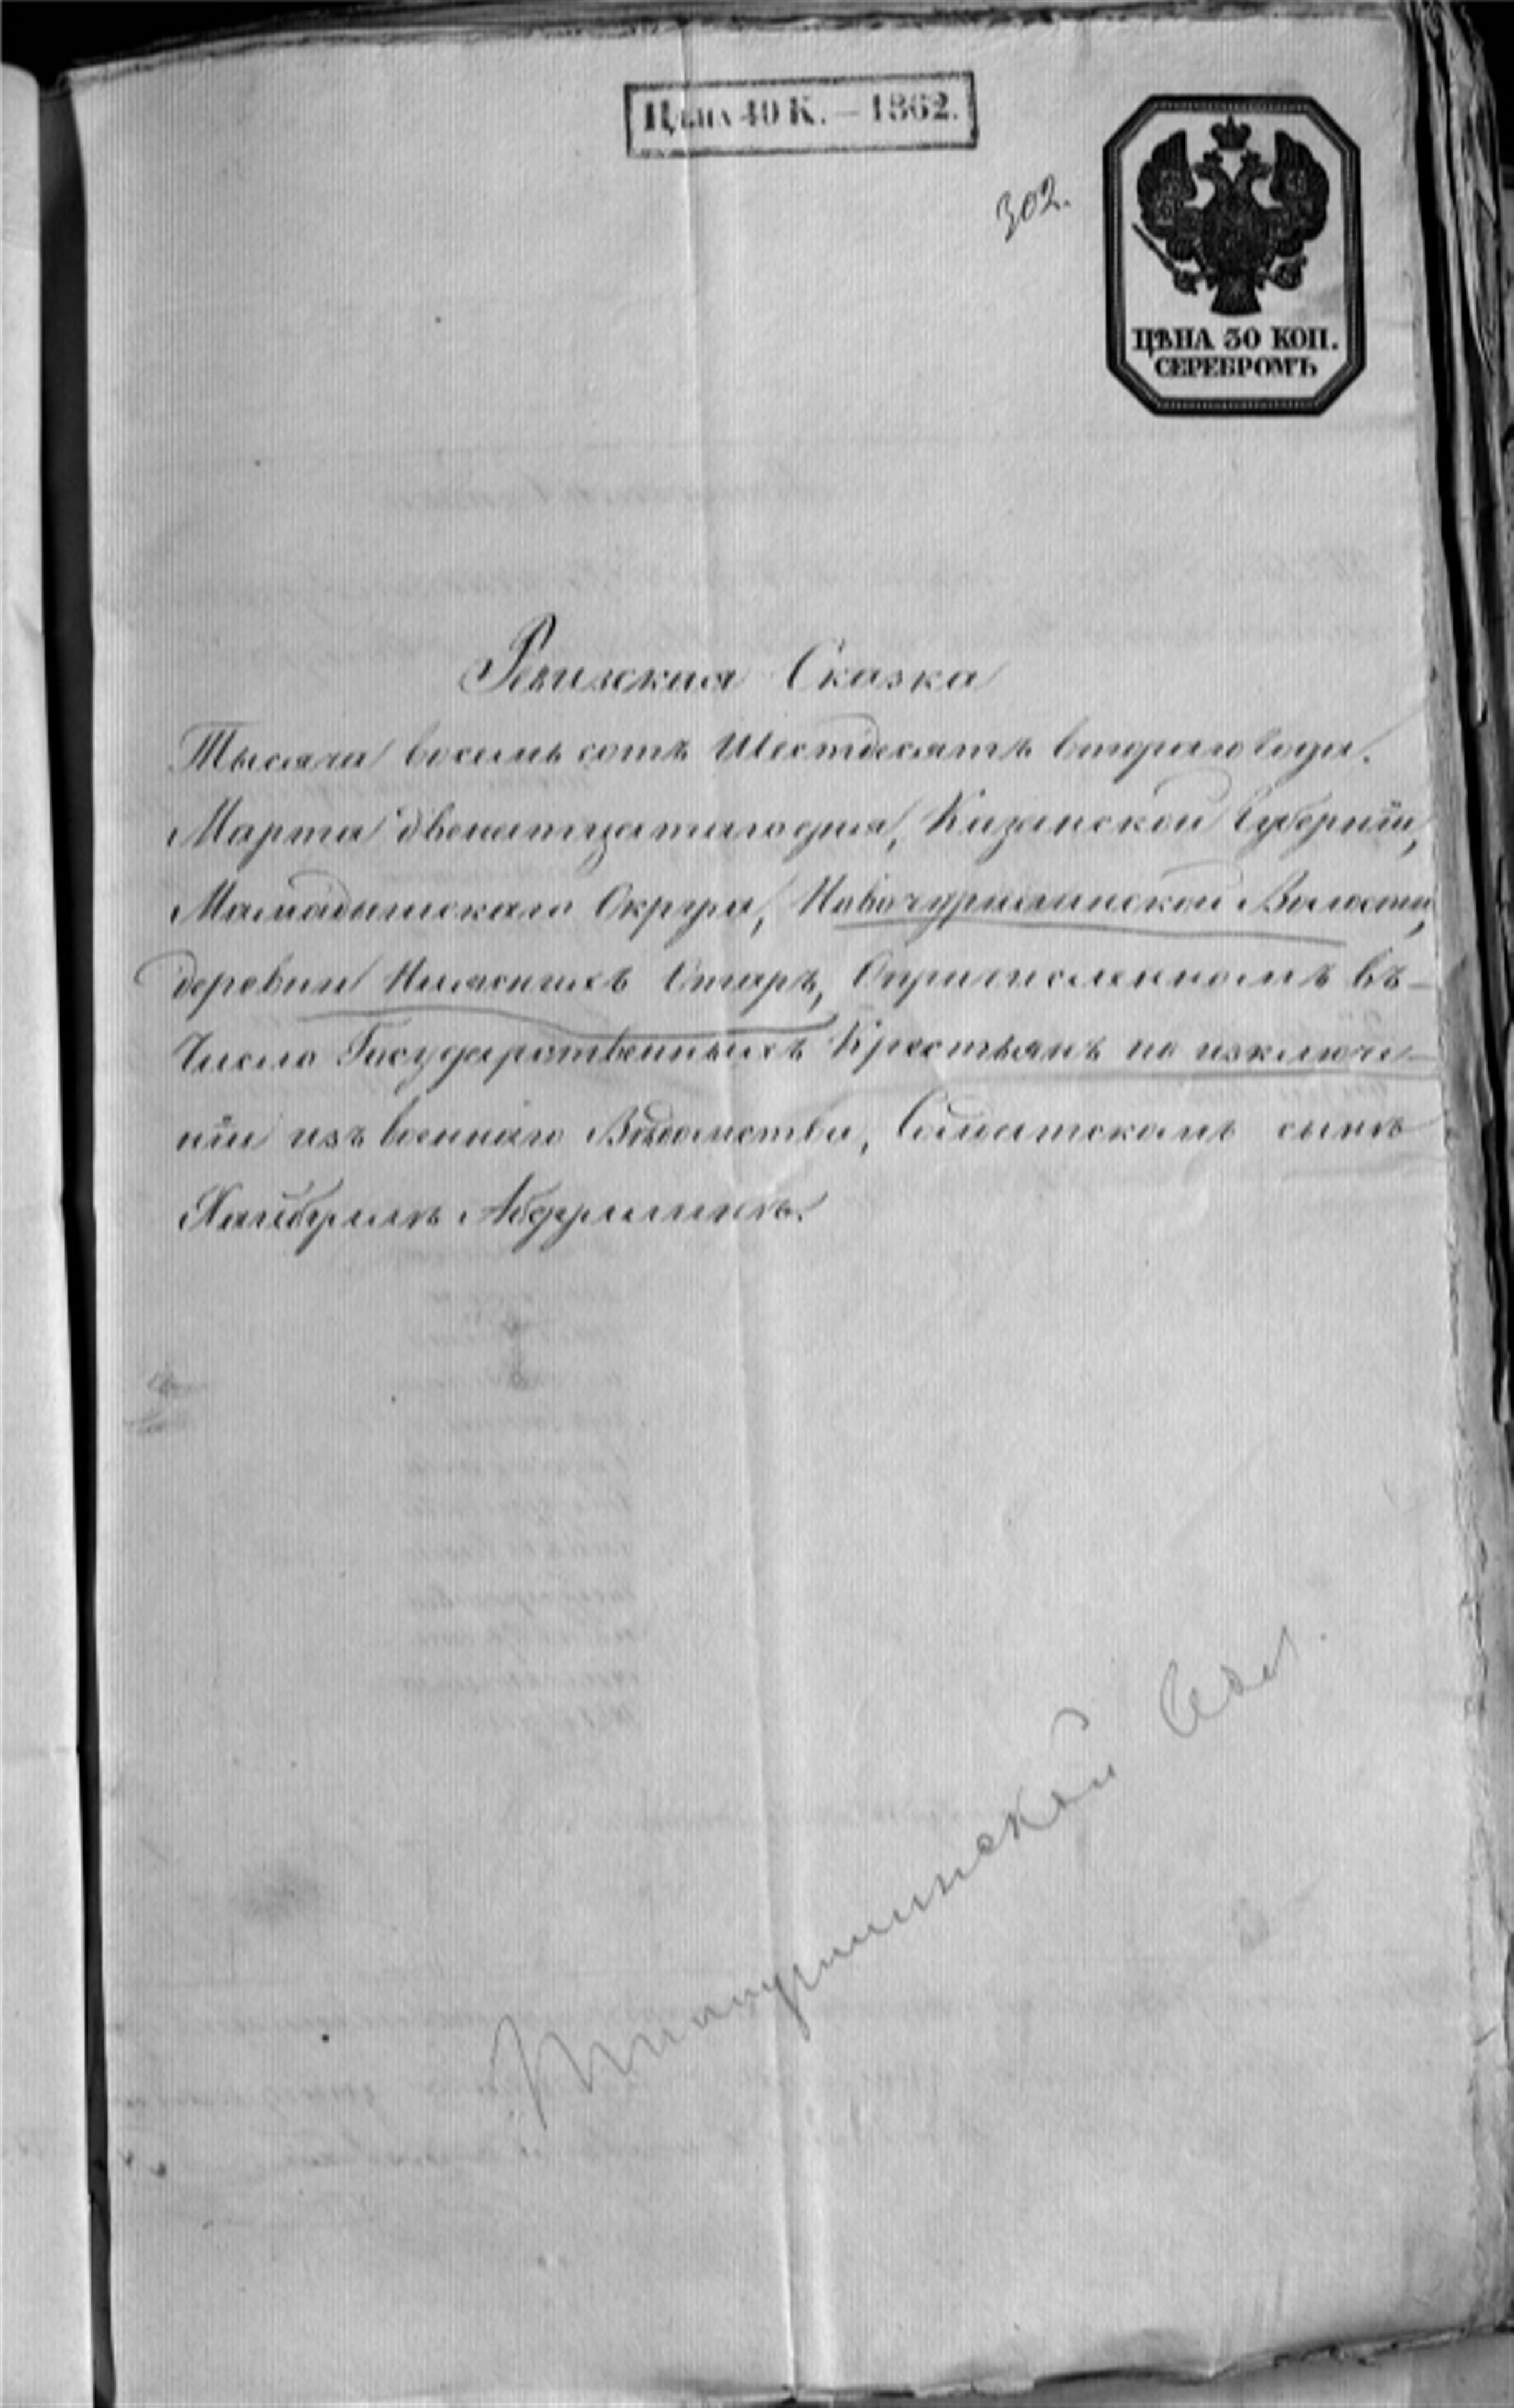 Цѣна 40 К. — 1862.
302.
ЦѢНА 30 КОП.
СЕРЕБРОМЪ
Ревизская Сказка
Тысяча восемь сотъ Шестдесятъ втораго года.
Марта двенатцатаго дня, Казанской Губерніи,
Мамадышскаго Округа, Новочурилинской Волости,
деревни Отаръ, Опричисленномъ въ
Число Государственныхъ Крестьянъ по изключе-
ніи изъ военнаго Вѣдомства, Солдатскомъ сынѣ